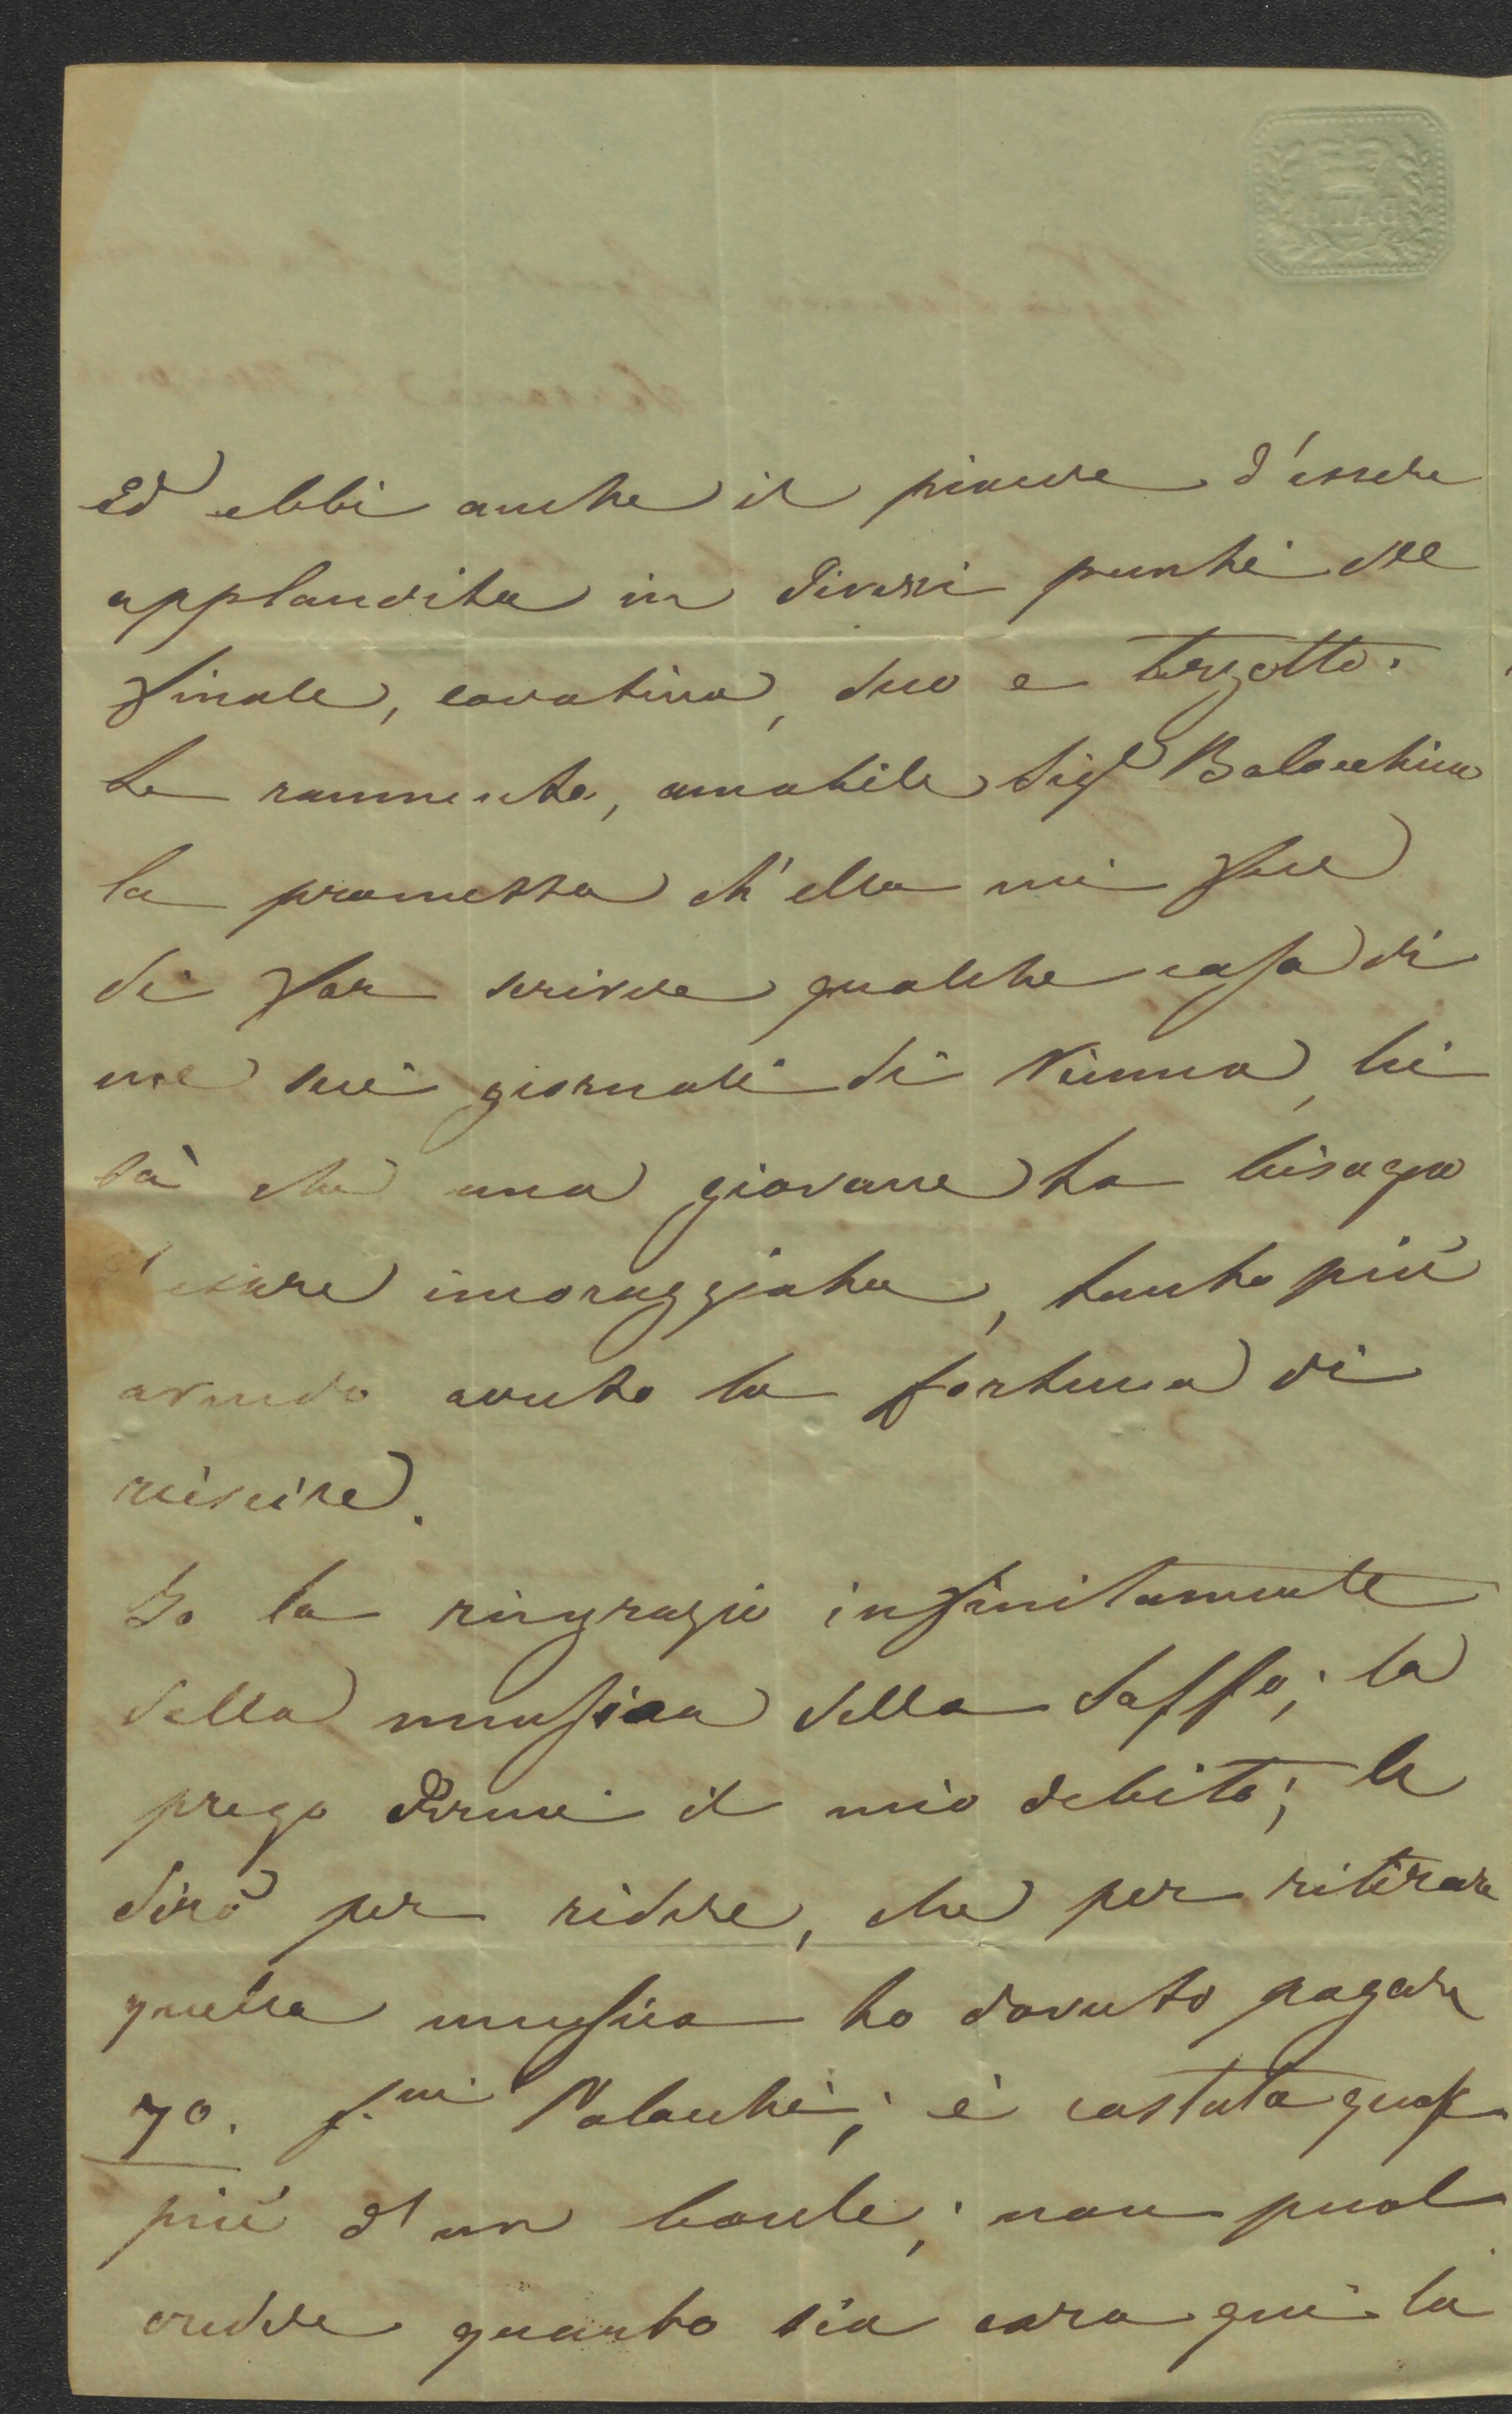 ed ebbi anche il piacere d'essere
applaudita in diversi punti del
finale, cavatina, duo e terzetto.
Le rammento, amabile Sigr Balocchino
la promessa ch'ella mi fece
di far scrivere qualche cosa di
me sui giornali di Vienna, lei
sà che una giovane ha bisogno
d'essere incoraggiata, tanto più
avendo avuto la fortuna di
riescire.
Io la ringrazio infinitamente
della musica della Saffo; la
prego dirmi il mio debito; le
dirò per ridere, che per ritirare
quella musica ho dovuto pagare
70. f.ni Polacchi; è costata quasi
più d'un baule; non puol
credere quanto sia cara quì la